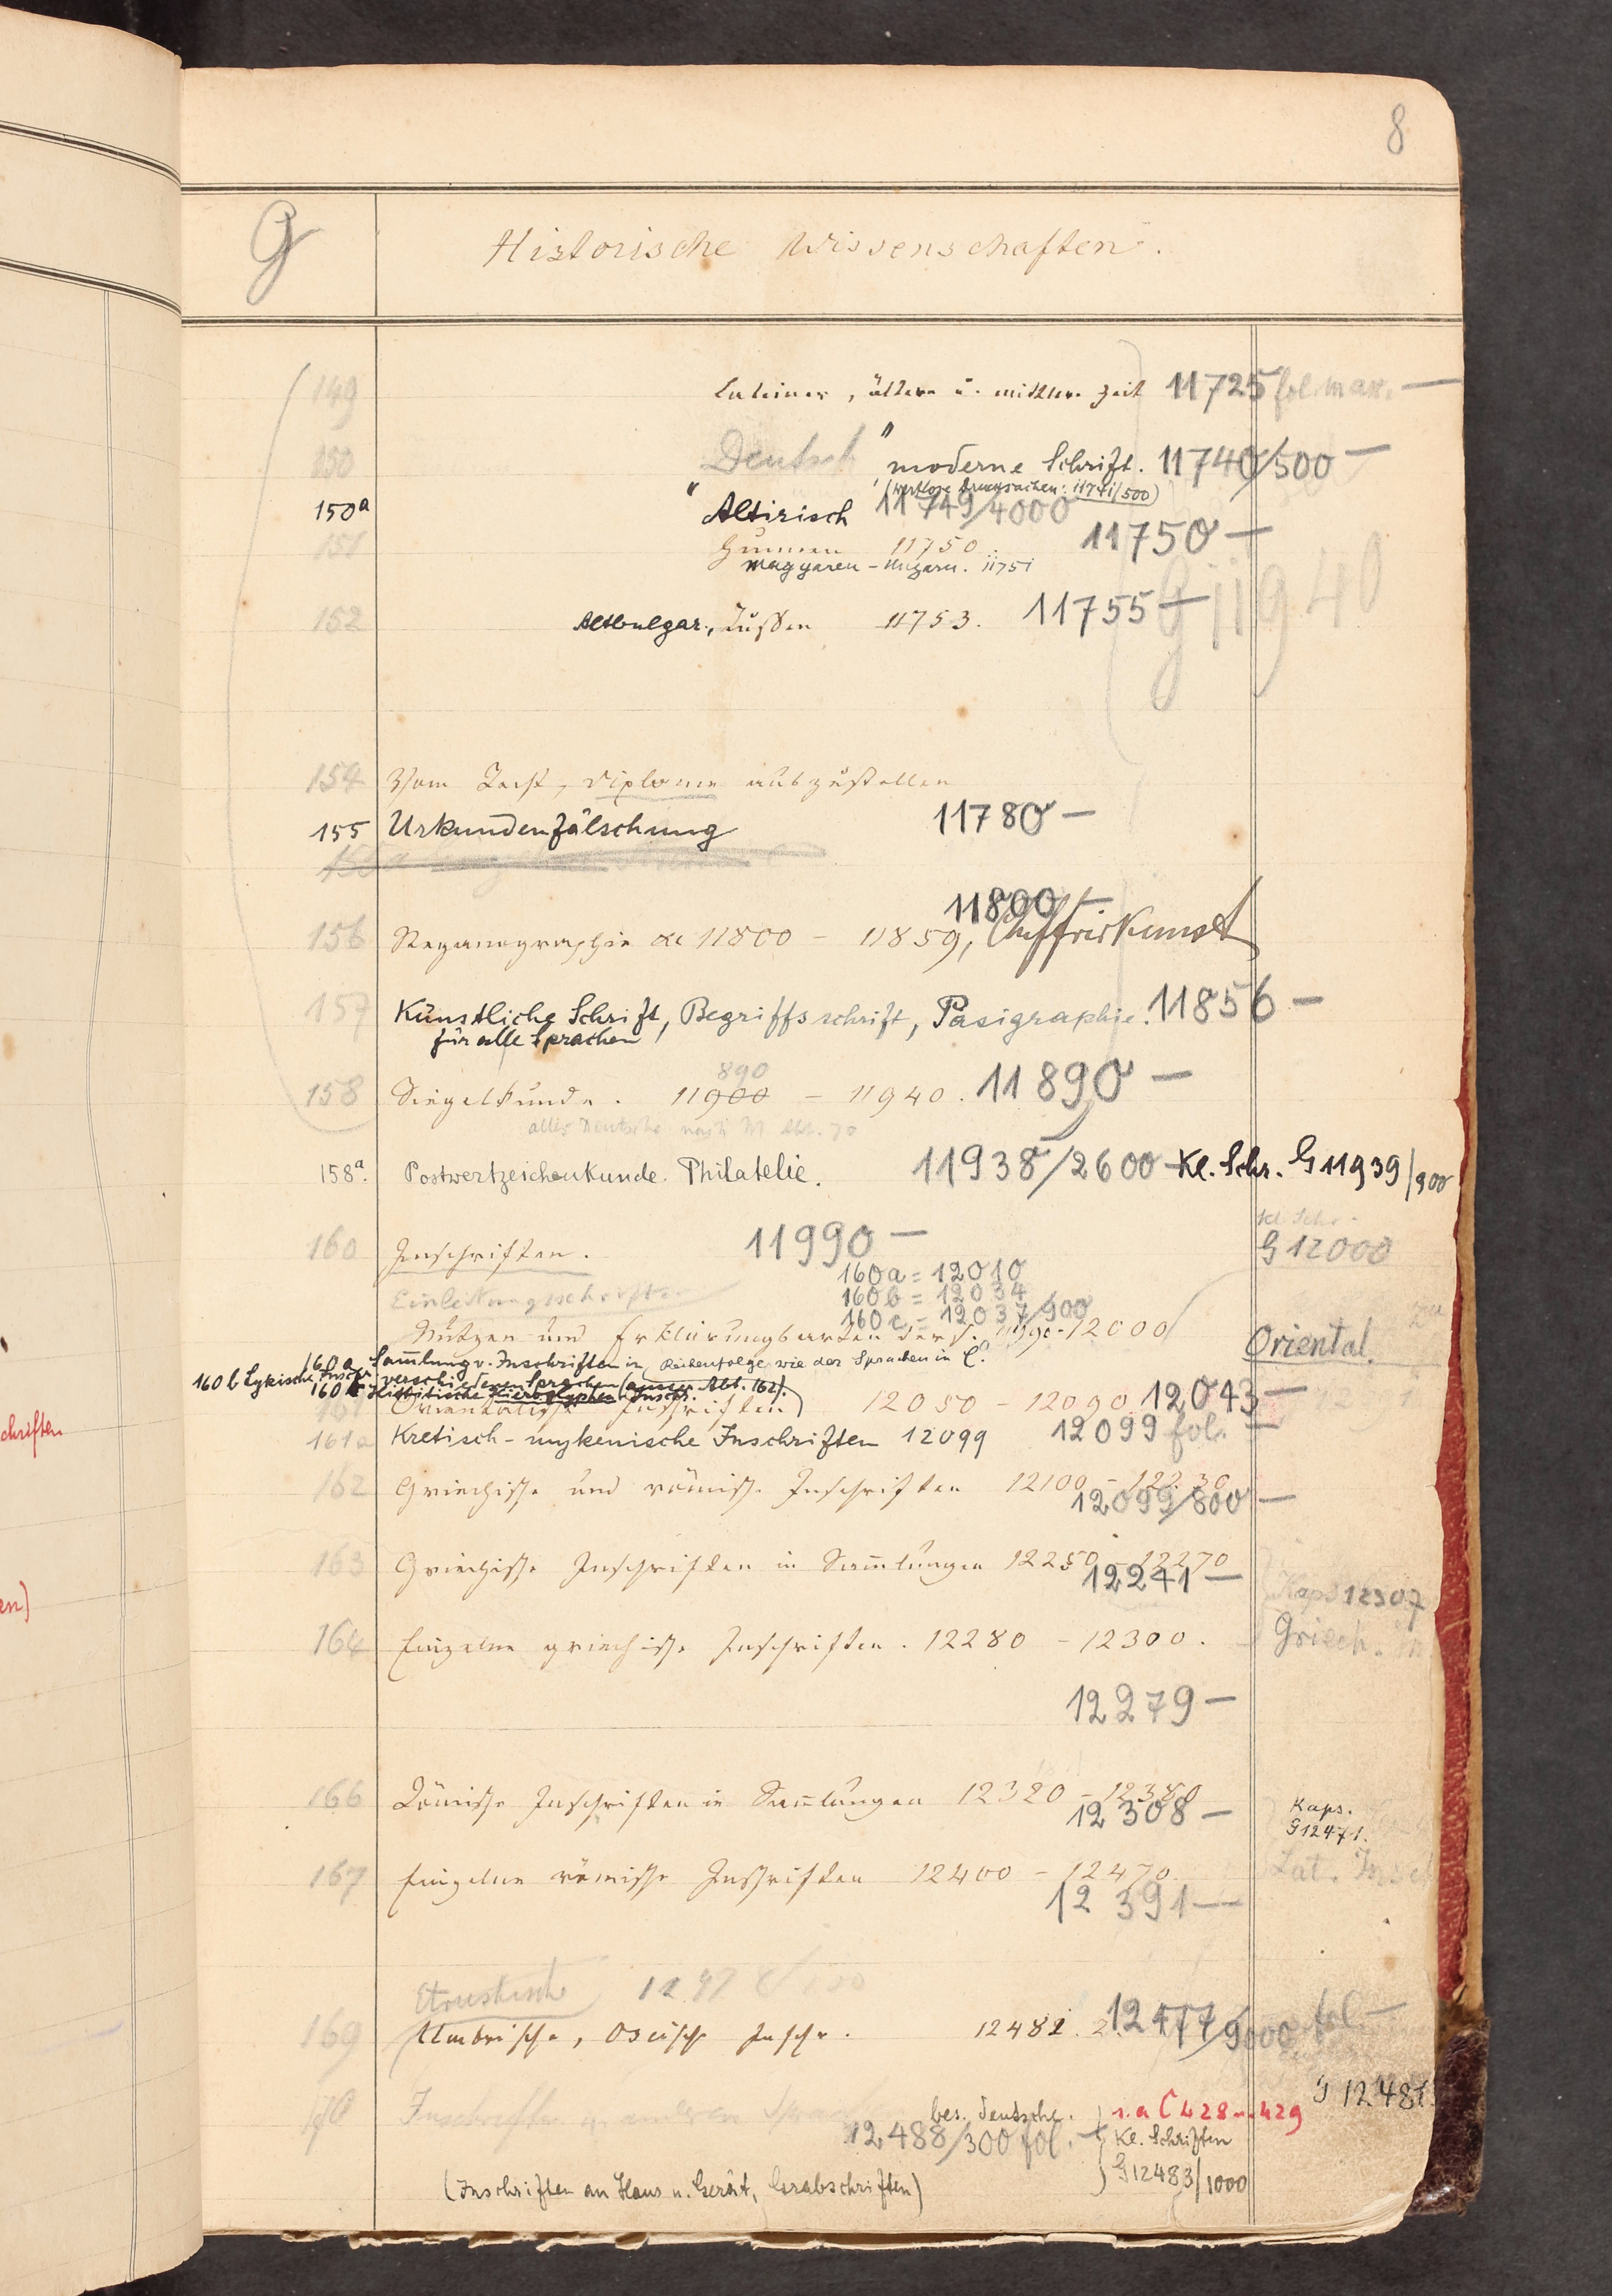 8
G Historische Wissenschaften.
149 Lateiner, ältere u. mittlere Zeit 11725 fol. max. —
150 Deutsch " moderne Schrift. 11740/500 —
(wertlose Drucksachen: 11741/500)
150a " Altirisch 11749/4000
151 Hunnen 11750. 11750 —
Magyaren - Ungarn. 11751
152 Altbulgar., Russen 11753. 11755 —
G 11940
154 Vom Recht, Diplome auszustellen
155 Urkundenfälschung 11780 —
11800 —
156 Steganographie &c 11800 - 11859, Chiffrirkunst
157 Künstliche Schrift, Begriffsschrift, Pasigraphie. 11856 —
für alle Sprachen
890
158 Siegelkunde. 11900 - 11940. 11890 —
alles Deutsche nach M Abt. 70
158a. Postwertzeichenkunde. Philatelie. 11938/2600 — Kl. Schr. G 11939/900
Kl. Schr.
160 Inschriften. 11990 — G 12000
160a = 12010
Einleitungsschriften 160b = 12034
160c = 12037/900
Nutzen und Erklärungsarten ders. 11990-12000
Oriental.
160a Sammlung v. Inschriften in Reihenfolge wie der Sprachen in C.
160b Lykische Inschr. verschiedenen Sprachen (ausser Abt. 162).
160c Hittitische Hieroglyphen Inschr.
161 Orientalische Inschriften 12050 - 12090 12043 —
161a Kretisch-mykenische Inschriften 12099 12099 fol. —
162 Griechische und römische Inschriften 12100 - 12230
12099/800 —
163 Griechische Inschriften in Sammlungen 12250 - 12270
12241 —
Kaps 12307
164 Einzelne griechische Inschriften. 12280 - 12300. Griech. In
12279 —
166 Römische Inschriften in Sammlungen 12320 - 12380
12308 —
Kaps.
G 12471.
167 Einzelne römische Inschriften 12400 - 12470. Lat. Insch
12391 —
Etruskische
169 Umbrische, Oscische Inschr. 12482. 12477/9000 fol. —
G 12481
170 Inschriften in anderen Sprachen bes. deutsche. s. a C 428 u. 429
12488/300 fol. — Kl. Schriften
G 12483/1000
(Inschriften an Haus u. Gerät, Grabschriften)
schriften
en)